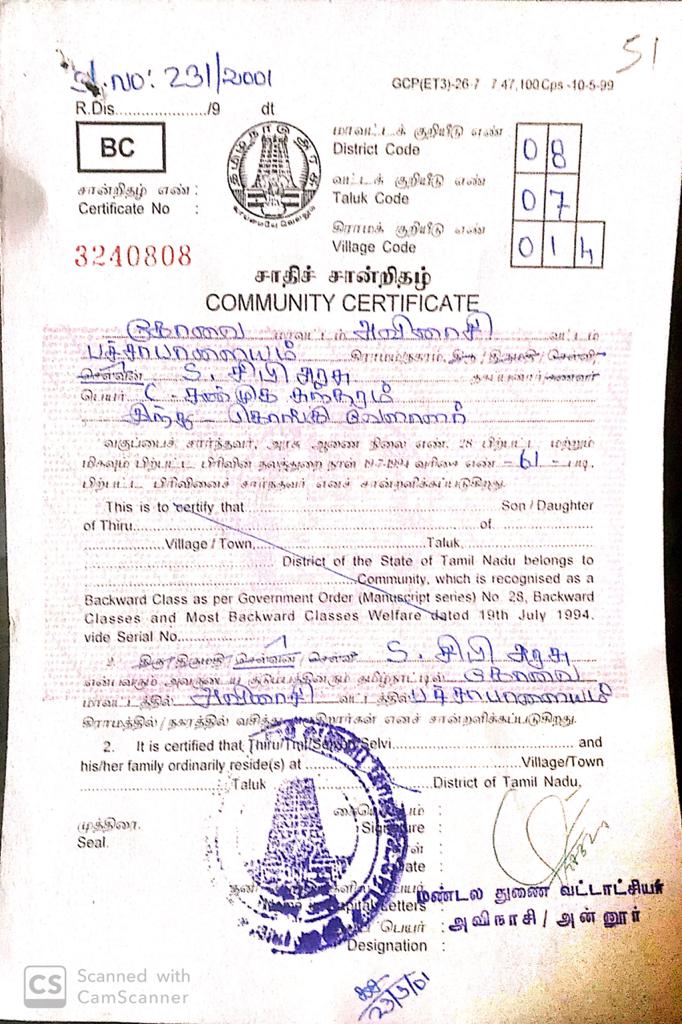 51
Sl.NO: 231/2001
GCP(ET3)-26-7 7 47,100Cps -10-5-99
R.Dis....................../9 dt
BC
தமிழ்நாடு அரசு
வாய்மையே வெல்லும்
மாவட்டக் குறியீடு எண்
District Code
08
வட்டக் குறியீடு எண்
Taluk Code
07
கிராமக் குறியீடு எண்
Village Code
014
சான்றிதழ் எண் :
Certificate No :
3240808
சாதிச் சான்றிதழ்
COMMUNITY CERTIFICATE
கோவை மாவட்டம் அவிநாசி வட்டம்
பச்சாபாளையம் கிராமம்/நகரம், திரு / திருமதி / செல்வி
செல்வன் S. சிபி அரசு தகப்பனார்/கணவர்
பெயர் C. சண்முக சுந்தரம்
இந்து - கொங்கு வேளாளர்
வகுப்பைச் சார்ந்தவர், அரசு ஆணை நிலை எண். 28 பிற்பட்ட மற்றும்
மிகவும் பிற்பட்ட பிரிவின் நலத்துறை நாள் 19-7-1994 வரிசை எண் - 61 - படி,
பிற்பட்ட பிரிவினைச் சார்ந்தவர் எனச் சான்றளிக்கப்படுகிறது.
This is to certify that ........................ Son / Daughter
of Thiru........................ of ........................
........................Village / Town,........................Taluk,........................
........................ District of the State of Tamil Nadu belongs to
........................Community, which is recognised as a
Backward Class as per Government Order (Manuscript series) No 28, Backward
Classes and Most Backward Classes Welfare dated 19th July 1994,
vide Serial No........................
2. திரு/திருமதி/செல்வன்/செல்வி S. சிபி அரசு
என்பவரும் அவருடைய குடும்பத்தினரும் தமிழ்நாட்டில் கோவை
மாவட்டத்தில் அவிநாசி வட்டத்தில் பச்சாபாளையம்
கிராமத்தில் / நகரத்தில் எனச் சான்றளிக்கப்படுகிறது.
2. It is certified that Thiru/Tmt/Selvan/Selvi........................ and
his/her family ordinarily reside(s) at ........................Village/Town
........................Taluk ........................District of Tamil Nadu.
முத்திரை.
Seal.
Signature :
Date :
பெயர் :
Designation :
மண்டல துணை வட்டாட்சியர்
அவிநாசி / அன்னூர்
23/5/01
CS Scanned with
CamScanner